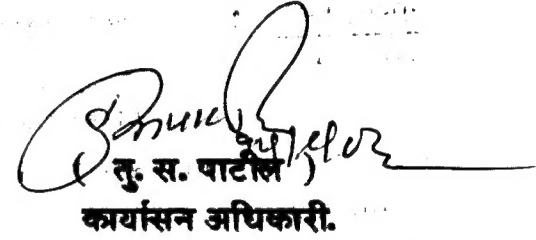 तु. स. पाटील )
कार्यासन अधिकारी.